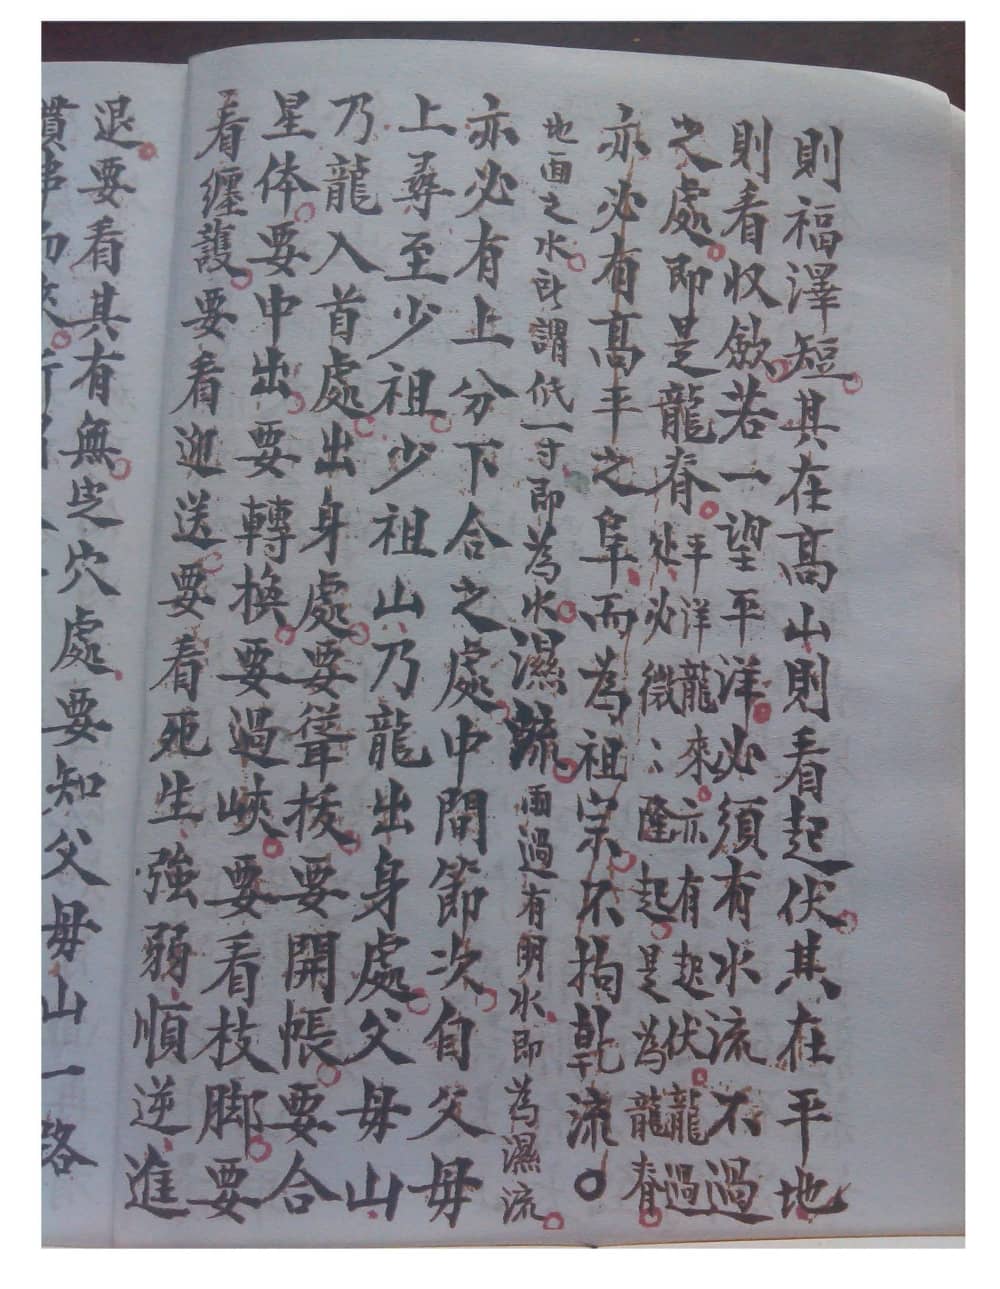 則福澤短其在高山則看起伏其在平地
則看收斂若一望平洋必須有水流不過
之處即是龍脊平洋龍來亦有起伏龍過
处必微〻隆起是為龍脊
亦必有高平之阜而為祖宗不拘乾流
地面之水所謂低一寸即為水濕流雨過有明水即為濕流
亦必有上分下合之處中間節次自父母
上尋至少祖少祖山乃龍出身處父母山
乃龍入首處出身處要聳拔要開帳要合
星体要中出要轉換要過峽要看枝脚要
看纏護要看迎送要看死生強弱順逆進
退要看其有無宐穴處要知父母山一路